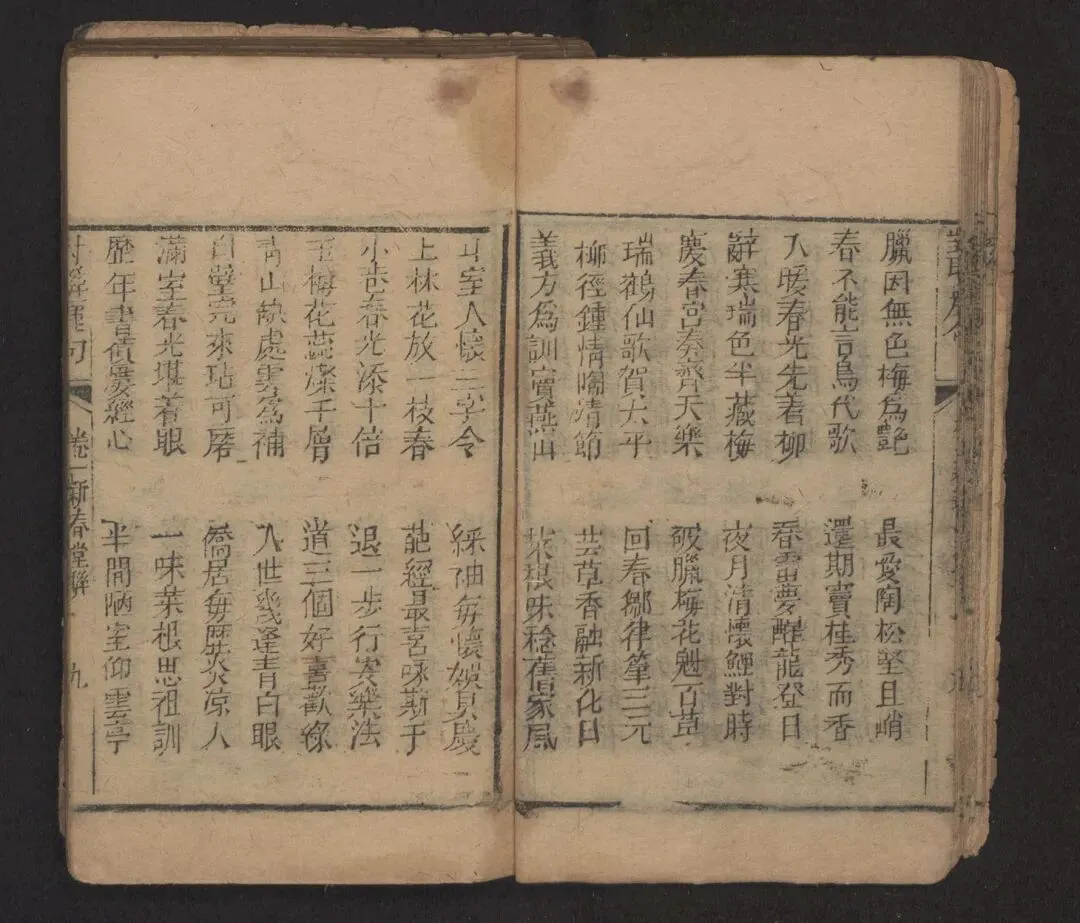 臘因無色梅為艷 最愛陶松堅且峭
春不能言鳥代歌 還期竇桂秀而香
入暖春光先着柳 春雷夢醒龍登日
辭寒瑞色半藏梅 夜月清懷鯉對時
慶春宮奏齊天樂 破臘梅花魁百草
瑞鶴仙歌賀太平 回春鄒律肇三元
柳徑鍾情陶清節 芸草香融新化日
義方為訓竇燕山 菜根味稔舊家風
斗室人懷三字令 綵袖每懷娛具慶
上林花放一枝春 葩經最喜咏斯干
小巷春光添十倍 退一步行安樂法
玉梅花蕊燦千層 道三個好喜歡緣
青山缺處雲為補 入世幾逢青白眼
白璧完來玷可磨 僑居每歷炎涼人
滿室春光堪着眼 一味菜根思祖訓
歷年書債慶經心 半間陋室仰雲亭
句 卷一新春堂聯 九